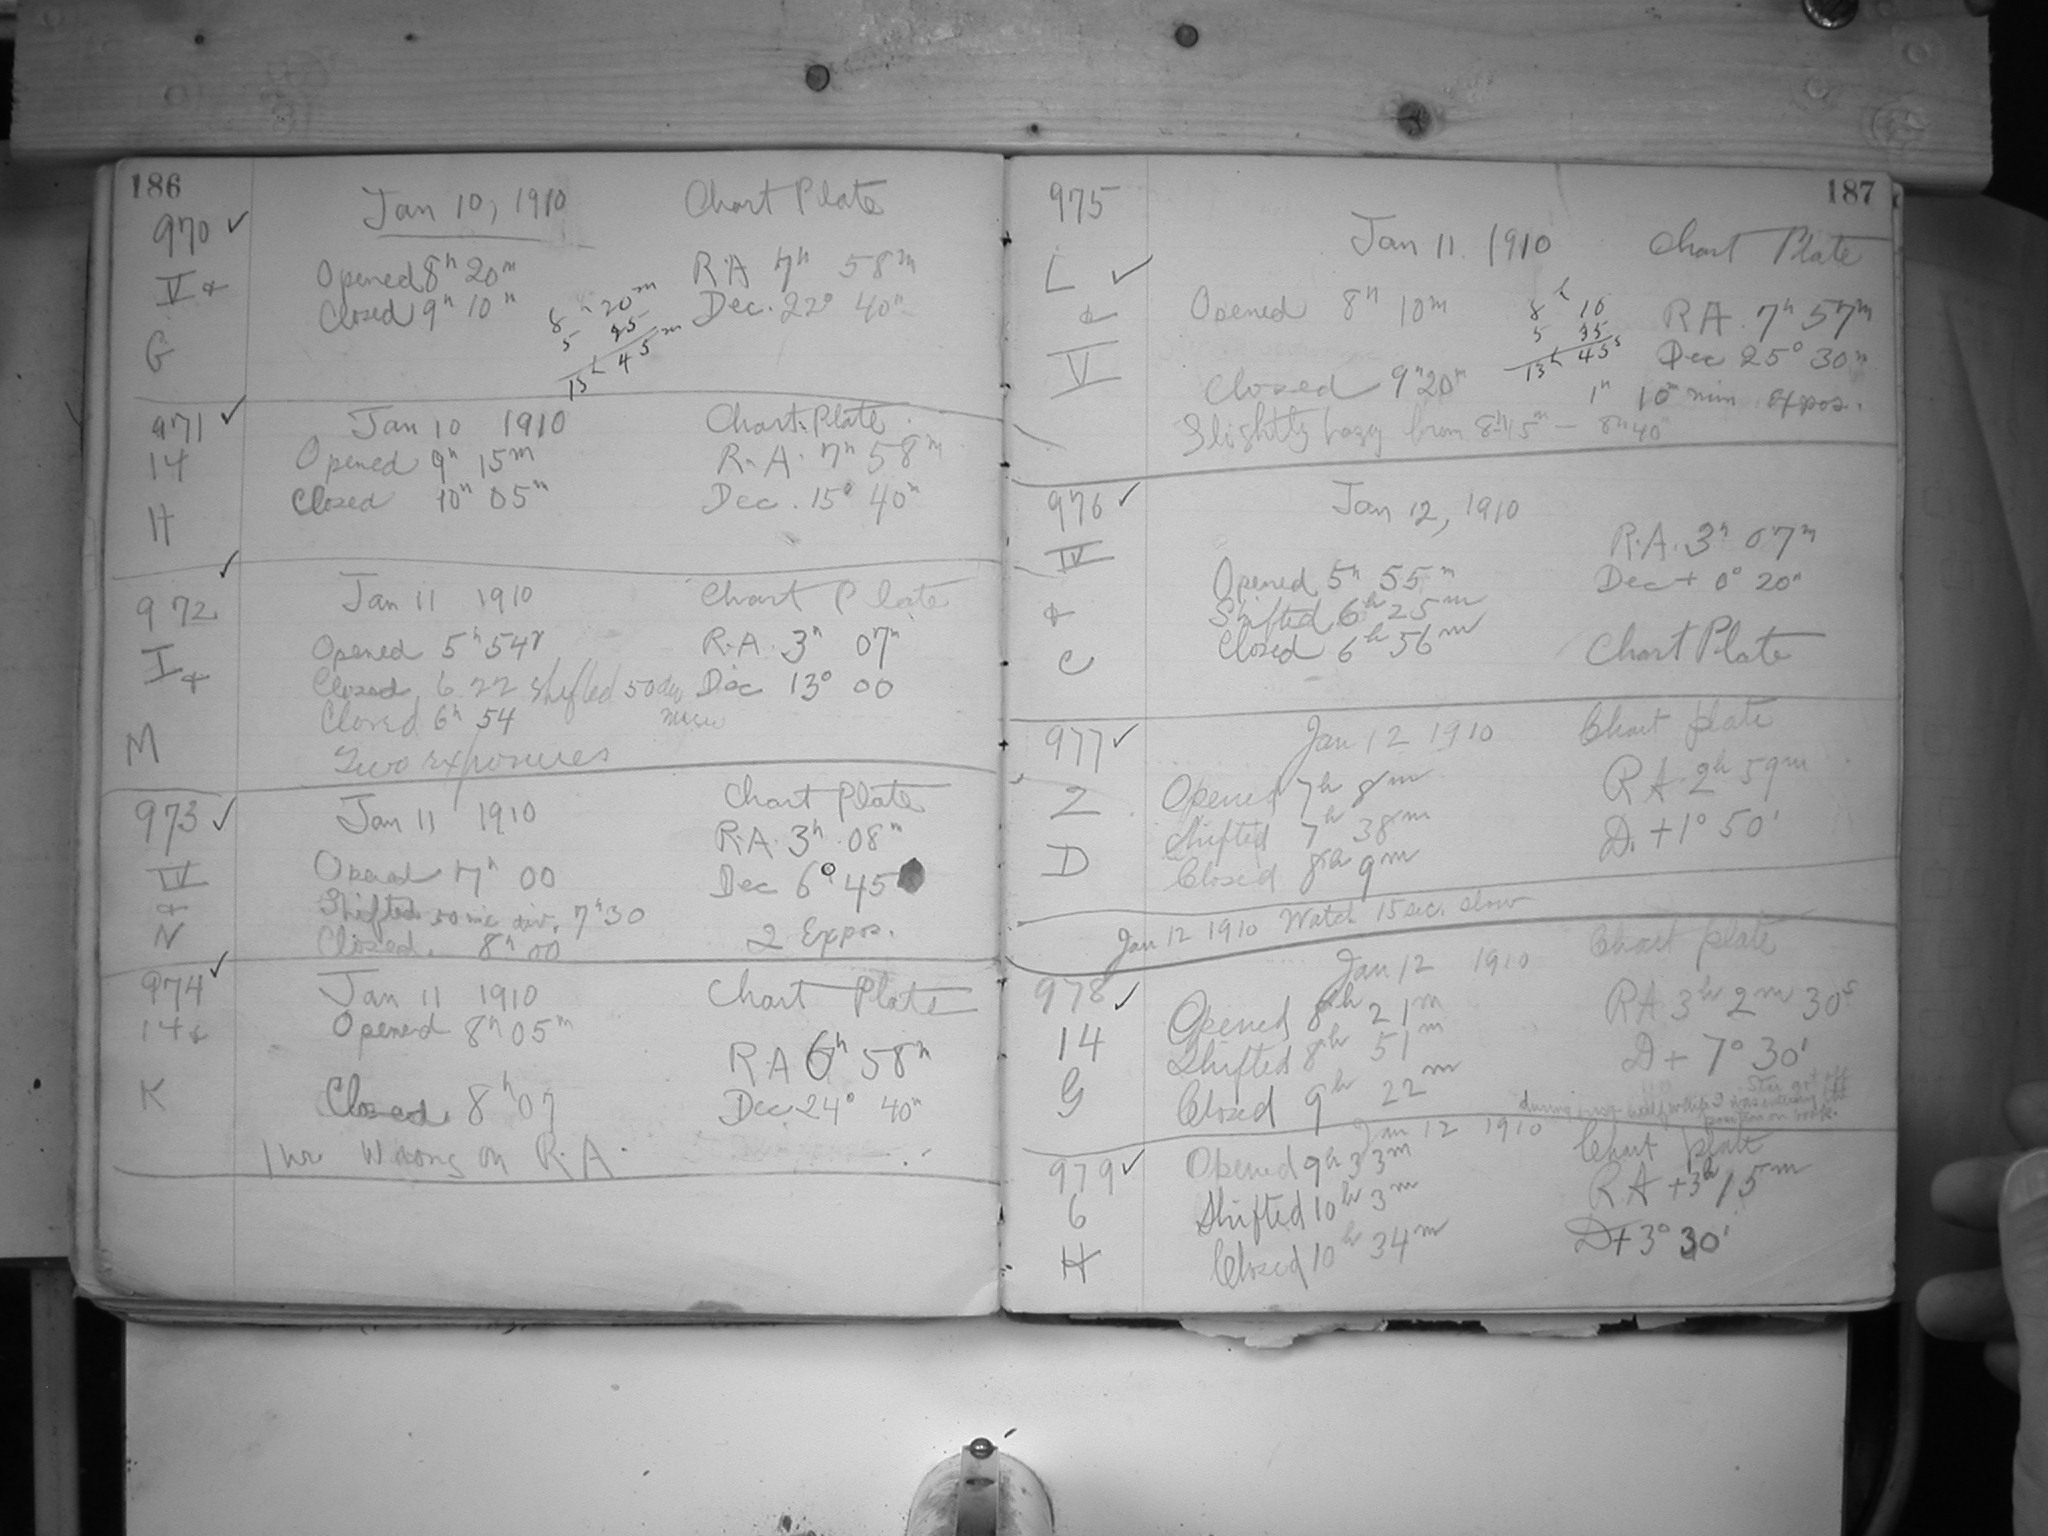 186
970 ✓ Jan 10, 1910 Chart Plate
V & Opened 8h 20m R.A 7h 58m
Closed 9h 10m Dec. 22° 40m
8h 20m
5 25
13h 45m
G
971 ✓ Jan 10 1910 Chart Plate
14 Opened 9h 15m R.A. 7h 58m
Closed 10h 05m Dec. 15° 40m
H
972 ✓ Jan 11 1910 Chart Plate
I & Opened 5h 54 R.A. 3h 07m
Closed 6 22 shifted 50 div Dec 13° 00
Closed 6h 54
M Two exposures
973 ✓ Jan 11 1910 Chart Plate
R.A. 3h 08m
IV Opened 7h 00 Dec 6° 45
& Shifted 50 mic div. 7h 30
N Closed. 8h 00 2 Expos.
974 ✓ Jan 11 1910 Chart Plate
14 & Opened 8h 05m
R A 6h 58m
K Closed 8h 07 Dec 24° 40m
1 hr Wrong on R.A.
187
975
Jan 11. 1910 Chart Plate
L ✓
& Opened 8h 10m R A. 7h 57m
8h 10
5 35
13h 45
V Dec 25° 30m
Closed 9h 20m 1h 10m min expos.
Slightly hazy from 8h 15m – 8h 40m
976 ✓ Jan 12, 1910
IV R.A. 3h 07m
Opened 5h 55m Dec + 0° 20m
& Shifted 6h 25m
C Closed 6h 56m Chart Plate
977 ✓ Jan 12 1910 Chart plate
2 Opened 7h 8m R A 2h 59m
Shifted 7h 38m D. +1° 50'
D Closed 8h 9m
Jan 12 1910 Watch 15 sec. slow
Jan 12 1910 Chart plate
978 ✓ Opened 8h 21m RA 3h 2m 30s
14 Shifted 8h 51m D + 7° 30'
G Closed 9h 22m
Star got off
during
position on book.
Jan 12 1910 Chart plate
979 ✓ Opened 9h 33m RA +3h 15m
6 Shifted 10h 3m
H Closed 10h 34m D+3° 30'